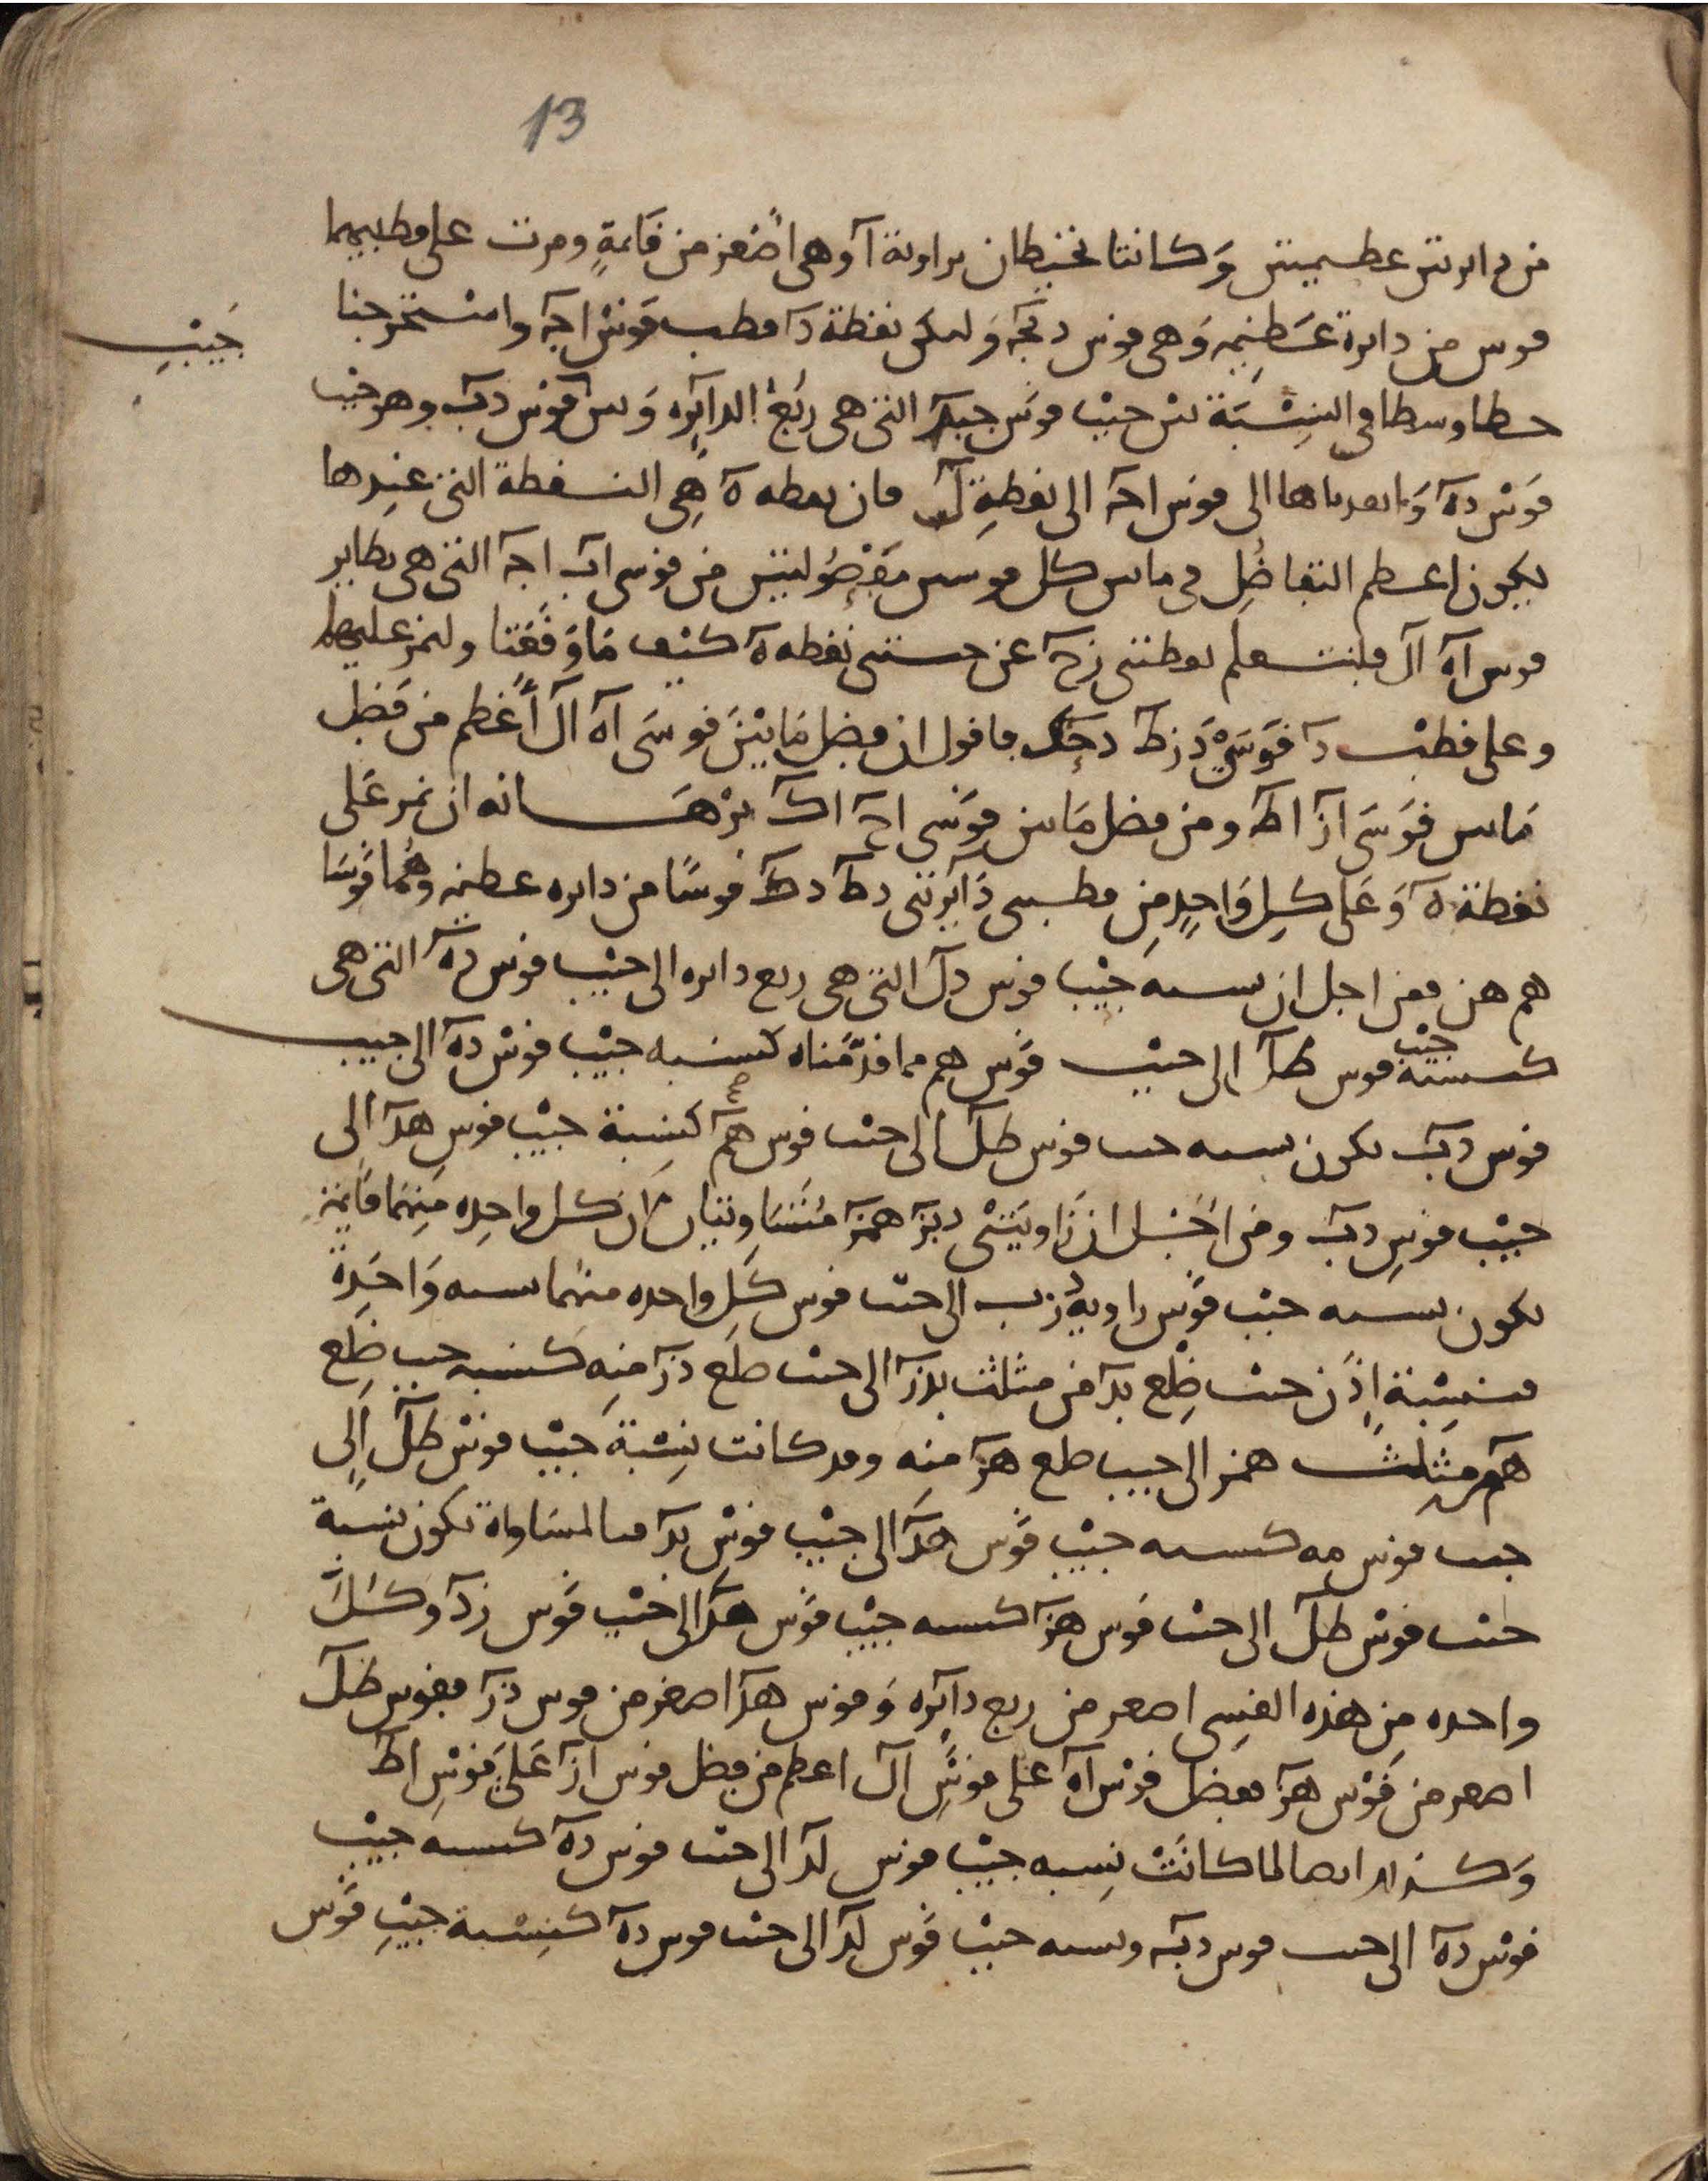 13
من دايرتين عظيمتين وَكانتا تحيطان بزاوية آ وهى اصْغر من قَايمةٍ ومرت على قطبيهما
قوس من دايرة عَظِيمه وَهى قوس د بَجَه وَليكن نقطة دَ قطب قَوْس اجَه واسْتخرجنا
جَيْبِ
خطا وسطا فى النِسْبَة بين جيْب قوس جبد التى هى ربُعُ الدايَره وَبين قَوْس دب وهو جيْب
قوْس ده وَابعدناها الى قوس اجه الى نقطةِ ل فان نقطه ه هِى النقطة التى عنِدها
يكون اعظم التفاضُل فى ما بين كل قوسين مَفْصُولتين من قوسى اب اجه التى هى نظاير
قوس اه ال فلنتعلم نقطتى ز ح عن جنبتى نقطه ه كيْف مَا وَقَعَتا وليمر عليهما
وعلى قطبْ دَ قَوْسَىْ دَ زط دحَك فاقول ان فضل مَا بيْنَ قوسَى اه ال أعْظم من فَضل
مَا بين قَوْسَى از اط ومن فضل مَا بين قوْسى اح اك بُرْهَانه ان نمر عَلى
نقطة ه وَعَلى كلِ وَاحِدٍ مِن قطبى دَايرتى دط دك قوسًا من دايره عظيمه وَهُما قَوْسَا
هم هن فمن اجل ان نسبه جيْب قوس دل التى هى ربع دايره الى جيْب قوس ده التى هى
كنسبة جيْب قوس طل الى جيْب قَوْس هم مما قدّمْناه كنسْبه جيْب قوْس ده الى جيب
قوس دب تكون نسبه جيب قوس طل الى جيْب قوس هم كنسْبة جيْب قوسِ هد الى
جيْب قوسِ دب ومن اجْل ان زَاويَتىْ دبز همز مُتَسَاويتان لان كل واحِده مِنهمَا قَايمة
تكون نسبه جيْب قَوْس زاويةِ دزب الى جيْب قوس كَلِ واحده منهُما نسبه وَاحَدِةً
فنسِبْة اِذَن جيْب ضِلْع بد من مثلث بدز الى جيْب ضلَع دز منِه كنسبه جيب ضلِع
هم من مثَلثْ همز الى جيب ضلع هز منه وقد كانت نِسْبةَ جيْب قوْس طل الَى
جيب قوس مه كنسبه جيْب قَوْس هد الى جيْب قوْس بد فبالمسَاواة تكون نسبة
جيْب قوْس طل الى جيْب قوس هز كنسبه جيْب قوْس هد الى جيْب قَوْس زد وكلُ
واحده مِن هذه القسِى اصغر من ربع دايَره وَقوس هد اصغر من قوس دز فقوس طل
اصغر من قَوْس هز ففضل قوْس اه على قوْسِ ال اعظم من فضل قوس از عَلَى قوْسِ اط
وَكذلك ايضا لما كانَتْ نسِبه جيْب قوس لد الى جيْب قوس ده كنسبه جيْب
قوْس ده الى جيب قوس دب ونسبه جيْب قَوْس لد الى جيْب قوس ده كنِسْبة جيْبِ قَوْس